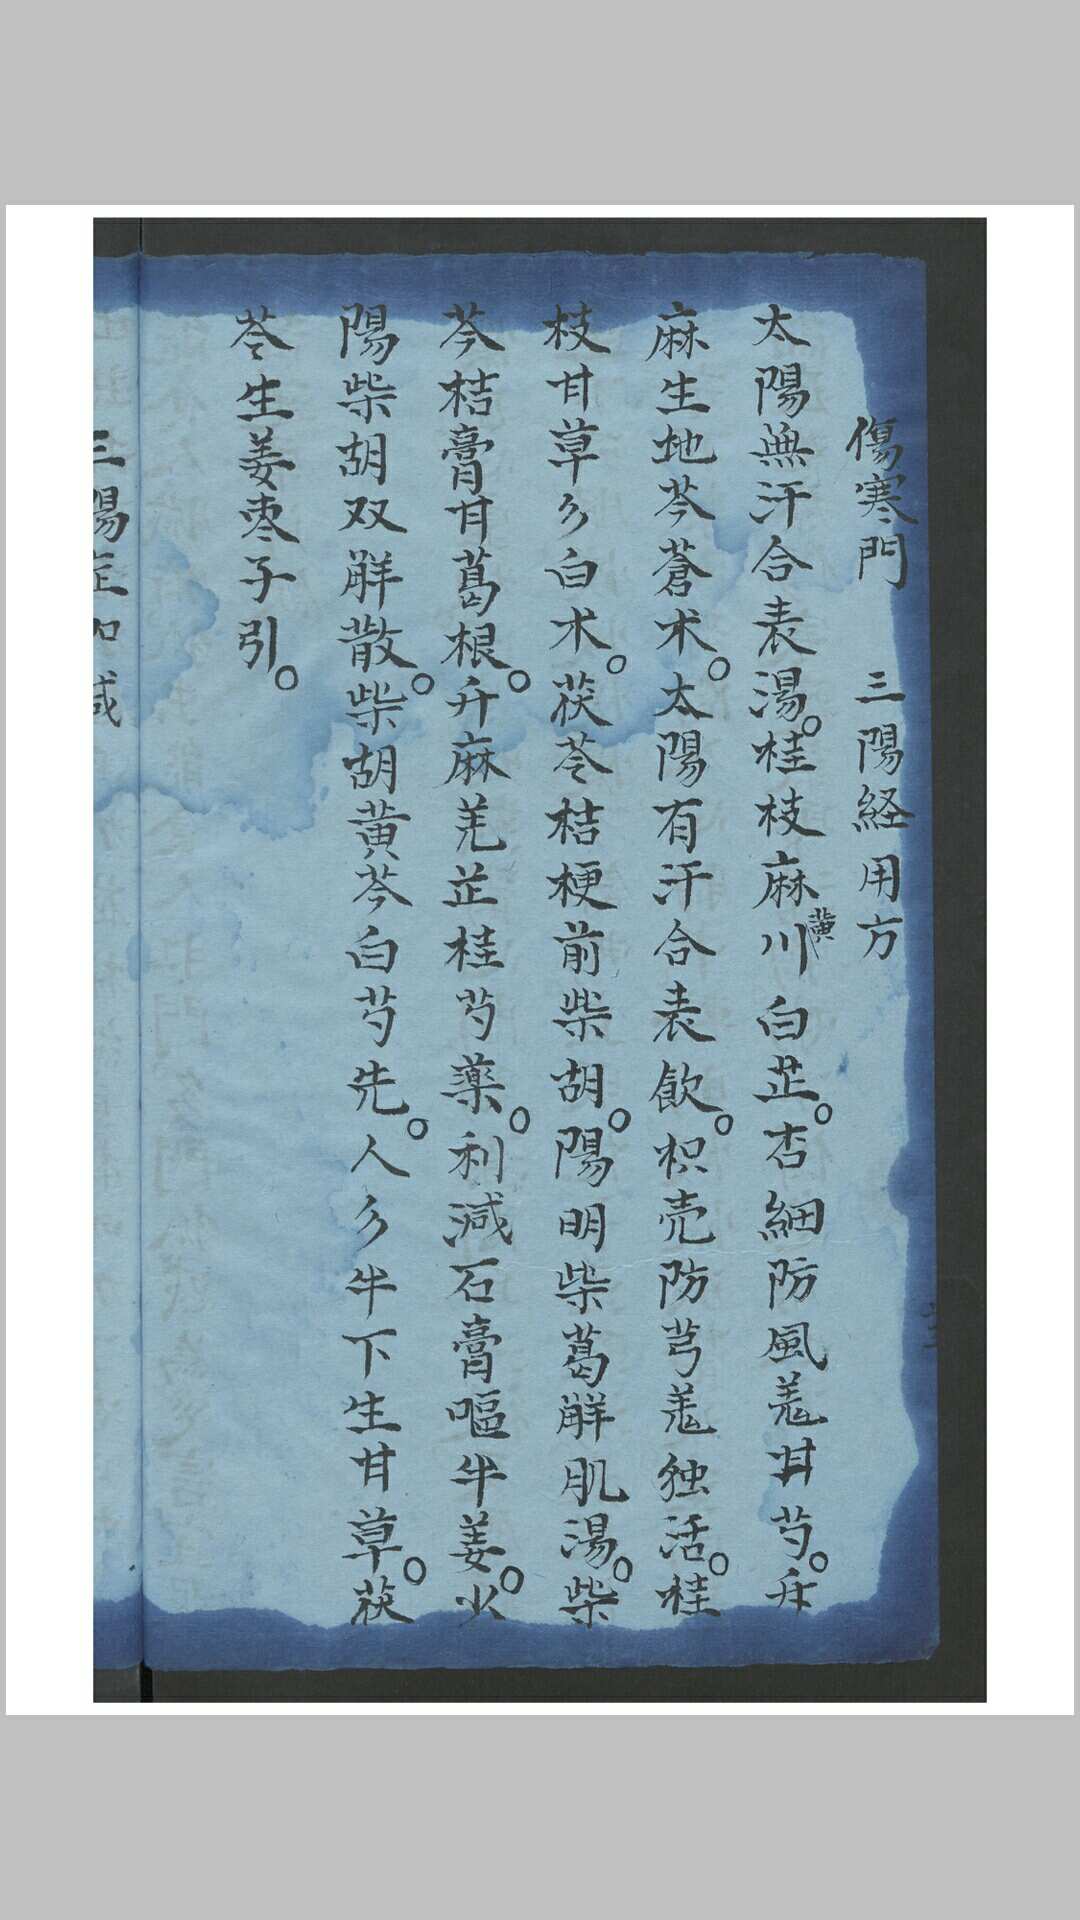 傷寒門　三陽経用方
太陽無汗合表湯。桂枝麻黄川白芷。杏細防風羗甘芍。升
麻生地芩蒼术。太陽有汗合表飲。枳壳防芎羗独活。桂
枝甘草夕白术。茯苓桔梗前柴胡。陽明柴葛解肌湯。柴
芩桔膏甘葛根。升麻羌芷桂芍藥。利減石膏嘔半姜。少
陽柴胡双解散。柴胡黄芩白芍先。人夕半下生甘草。茯
苓生姜枣子引。
三陽症加減